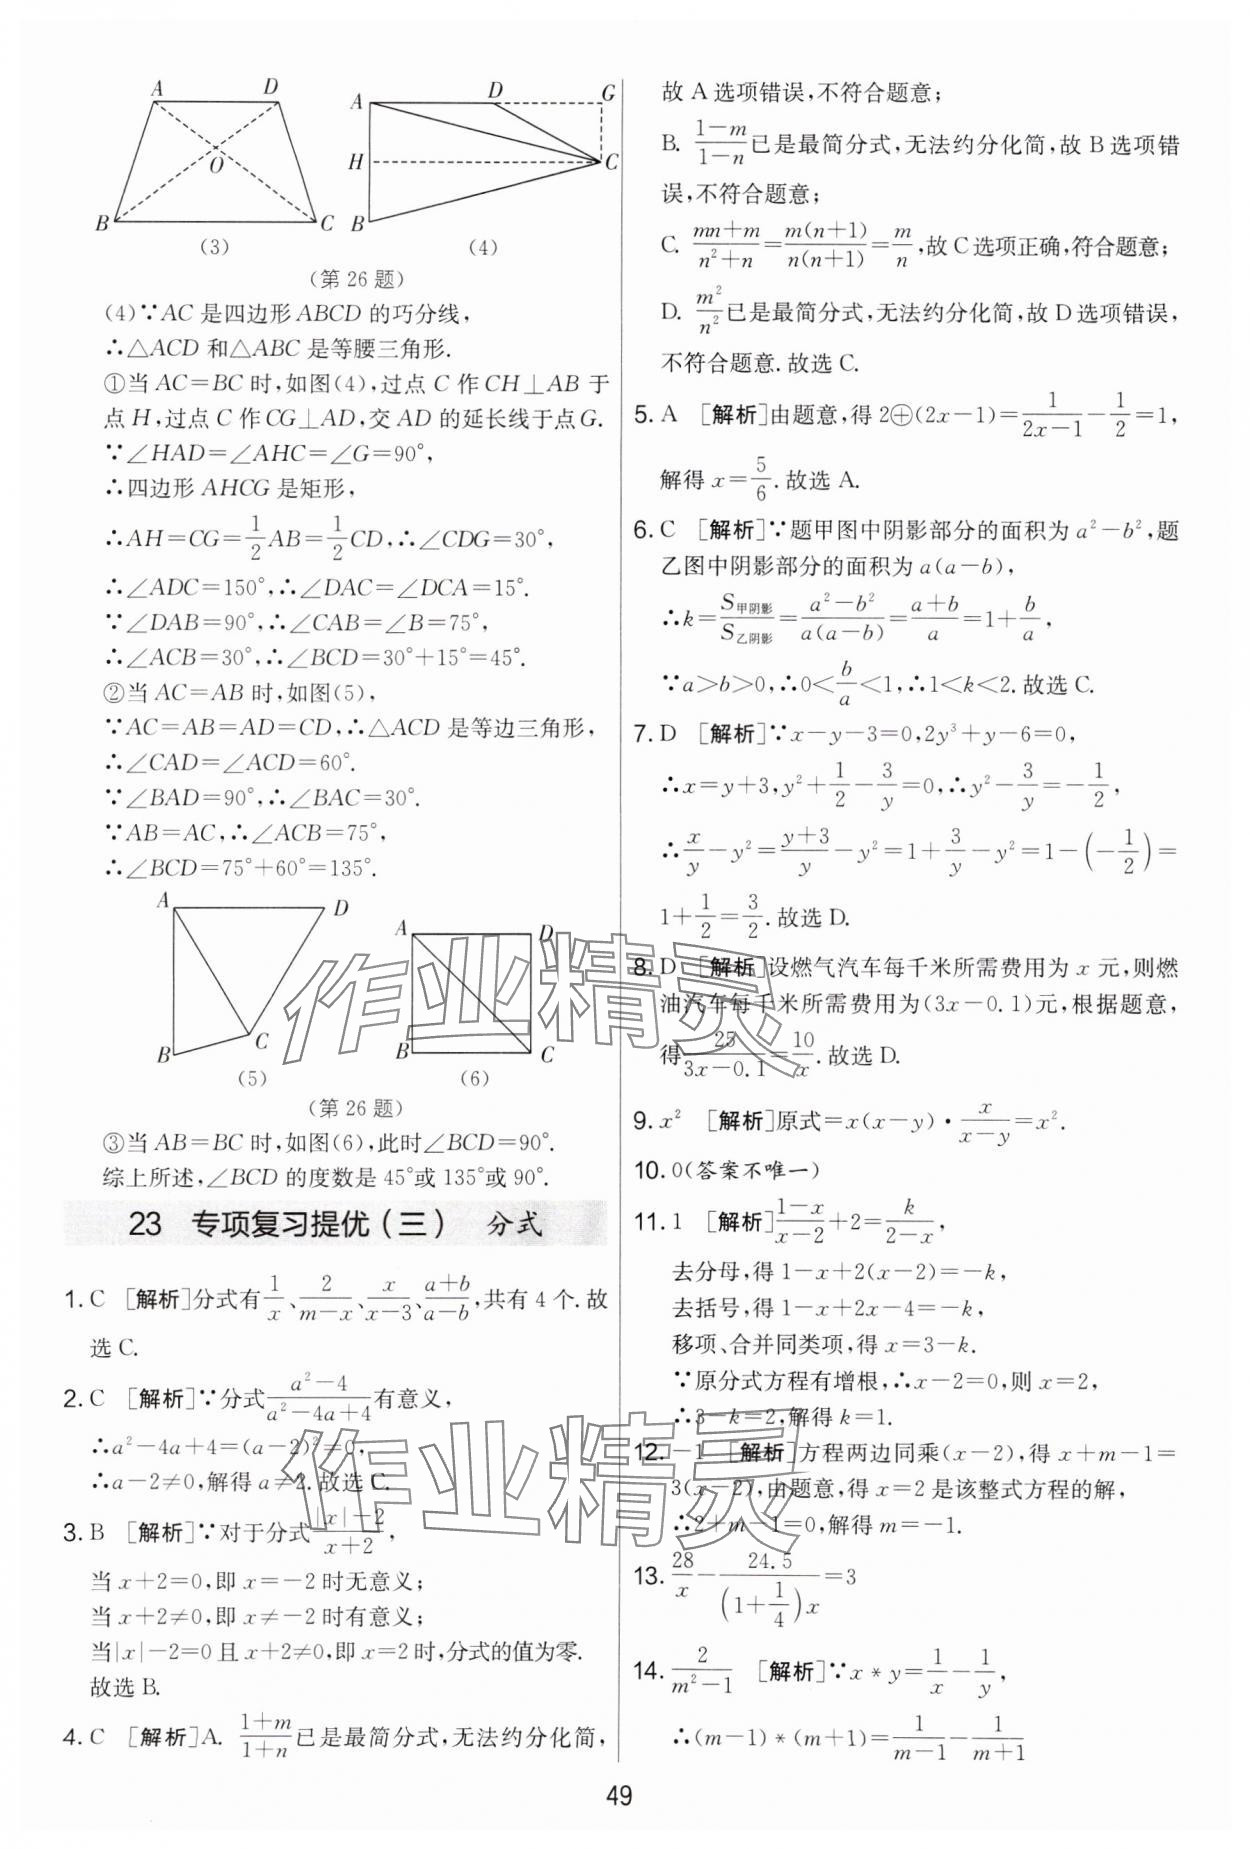 A D
O
B C
(3)
A D G
H C
B
(4)
(第26题)
(4)∵AC是四边形ABCD的巧分线,
∴△ACD和△ABC是等腰三角形.
①当AC=BC时,如图(4),过点C作CH⊥AB于
点H,过点C作CG⊥AD,交AD的延长线于点G.
∵∠HAD=∠AHC=∠G=90°,
∴四边形AHCG是矩形,
∴AH=CG=1/2AB=1/2CD,∴∠CDG=30°,
∴∠ADC=150°,∴∠DAC=∠DCA=15°.
∵∠DAB=90°,∴∠CAB=∠B=75°,
∴∠ACB=30°,∴∠BCD=30°+15°=45°.
②当AC=AB时,如图(5),
∵AC=AB=AD=CD,∴△ACD是等边三角形,
∴∠CAD=∠ACD=60°.
∵∠BAD=90°,∴∠BAC=30°.
∵AB=AC,∴∠ACB=75°,
∴∠BCD=75°+60°=135°.
A D
B C
(5)
A D
B C
(6)
(第26题)
③当AB=BC时,如图(6),此时∠BCD=90°.
综上所述,∠BCD的度数是45°或135°或90°.
23 专项复习提优(三) 分式
1. C [解析]分式有1/x、2/(m-x)、x/(x-3)、(a+b)/(a-b),共有4个.故
选C.
2. C [解析]∵分式(a²-4)/(a²-4a+4)有意义,
∴a²-4a+4=(a-2)²≠0,
∴a-2≠0,解得a≠2.故选C.
3. B [解析]∵对于分式(|x|-2)/(x+2),
当x+2=0,即x=-2时无意义;
当x+2≠0,即x≠-2时有意义;
当|x|-2=0且x+2≠0,即x=2时,分式的值为零.
故选B.
4. C [解析]A. (1+m)/(1+n)已是最简分式,无法约分化简,
故A选项错误,不符合题意;
B. (1-m)/(1-n)已是最简分式,无法约分化简,故B选项错
误,不符合题意;
C. (mn+m)/(n²+n)=m(n+1)/n(n+1)=m/n,故C选项正确,符合题意;
D. m²/n²已是最简分式,无法约分化简,故D选项错误,
不符合题意.故选C.
5. A [解析]由题意,得2⊕(2x-1)=1/(2x-1)-1/2=1,
解得x=5/6.故选A.
6. C [解析]∵题甲图中阴影部分的面积为a²-b²,题
乙图中阴影部分的面积为a(a-b),
∴k=S甲阴影/S乙阴影=(a²-b²)/a(a-b)=(a+b)/a=1+b/a,
∵a>b>0,∴0<b/a<1,∴1<k<2.故选C.
7. D [解析]∵x-y-3=0,2y³+y-6=0,
∴x=y+3,y²+1/2-3/y=0,∴y²-3/y=-1/2,
∴x/y-y²=(y+3)/y-y²=1+3/y-y²=1-(-1/2)=
1+1/2=3/2.故选D.
8. D [解析]设燃气汽车每千米所需费用为x元,则燃
油汽车每千米所需费用为(3x-0.1)元,根据题意,
得25/(3x-0.1)=10/x.故选D.
9. x² [解析]原式=x(x-y)·x/(x-y)=x².
10. 0(答案不唯一)
11. 1 [解析](1-x)/(x-2)+2=k/(2-x),
去分母,得1-x+2(x-2)=-k,
去括号,得1-x+2x-4=-k,
移项、合并同类项,得x=3-k.
∵原分式方程有增根,∴x-2=0,则x=2,
∴3-k=2,解得k=1.
12. -1 [解析]方程两边同乘(x-2),得x+m-1=
3(x-2),由题意,得x=2是该整式方程的解,
∴2+m-1=0,解得m=-1.
13. 28/x-24.5/((1+1/4)x)=3
14. 2/(m²-1) [解析]∵x*y=1/x-1/y,
∴(m-1)*(m+1)=1/(m-1)-1/(m+1)
49
作业精灵
作业精灵